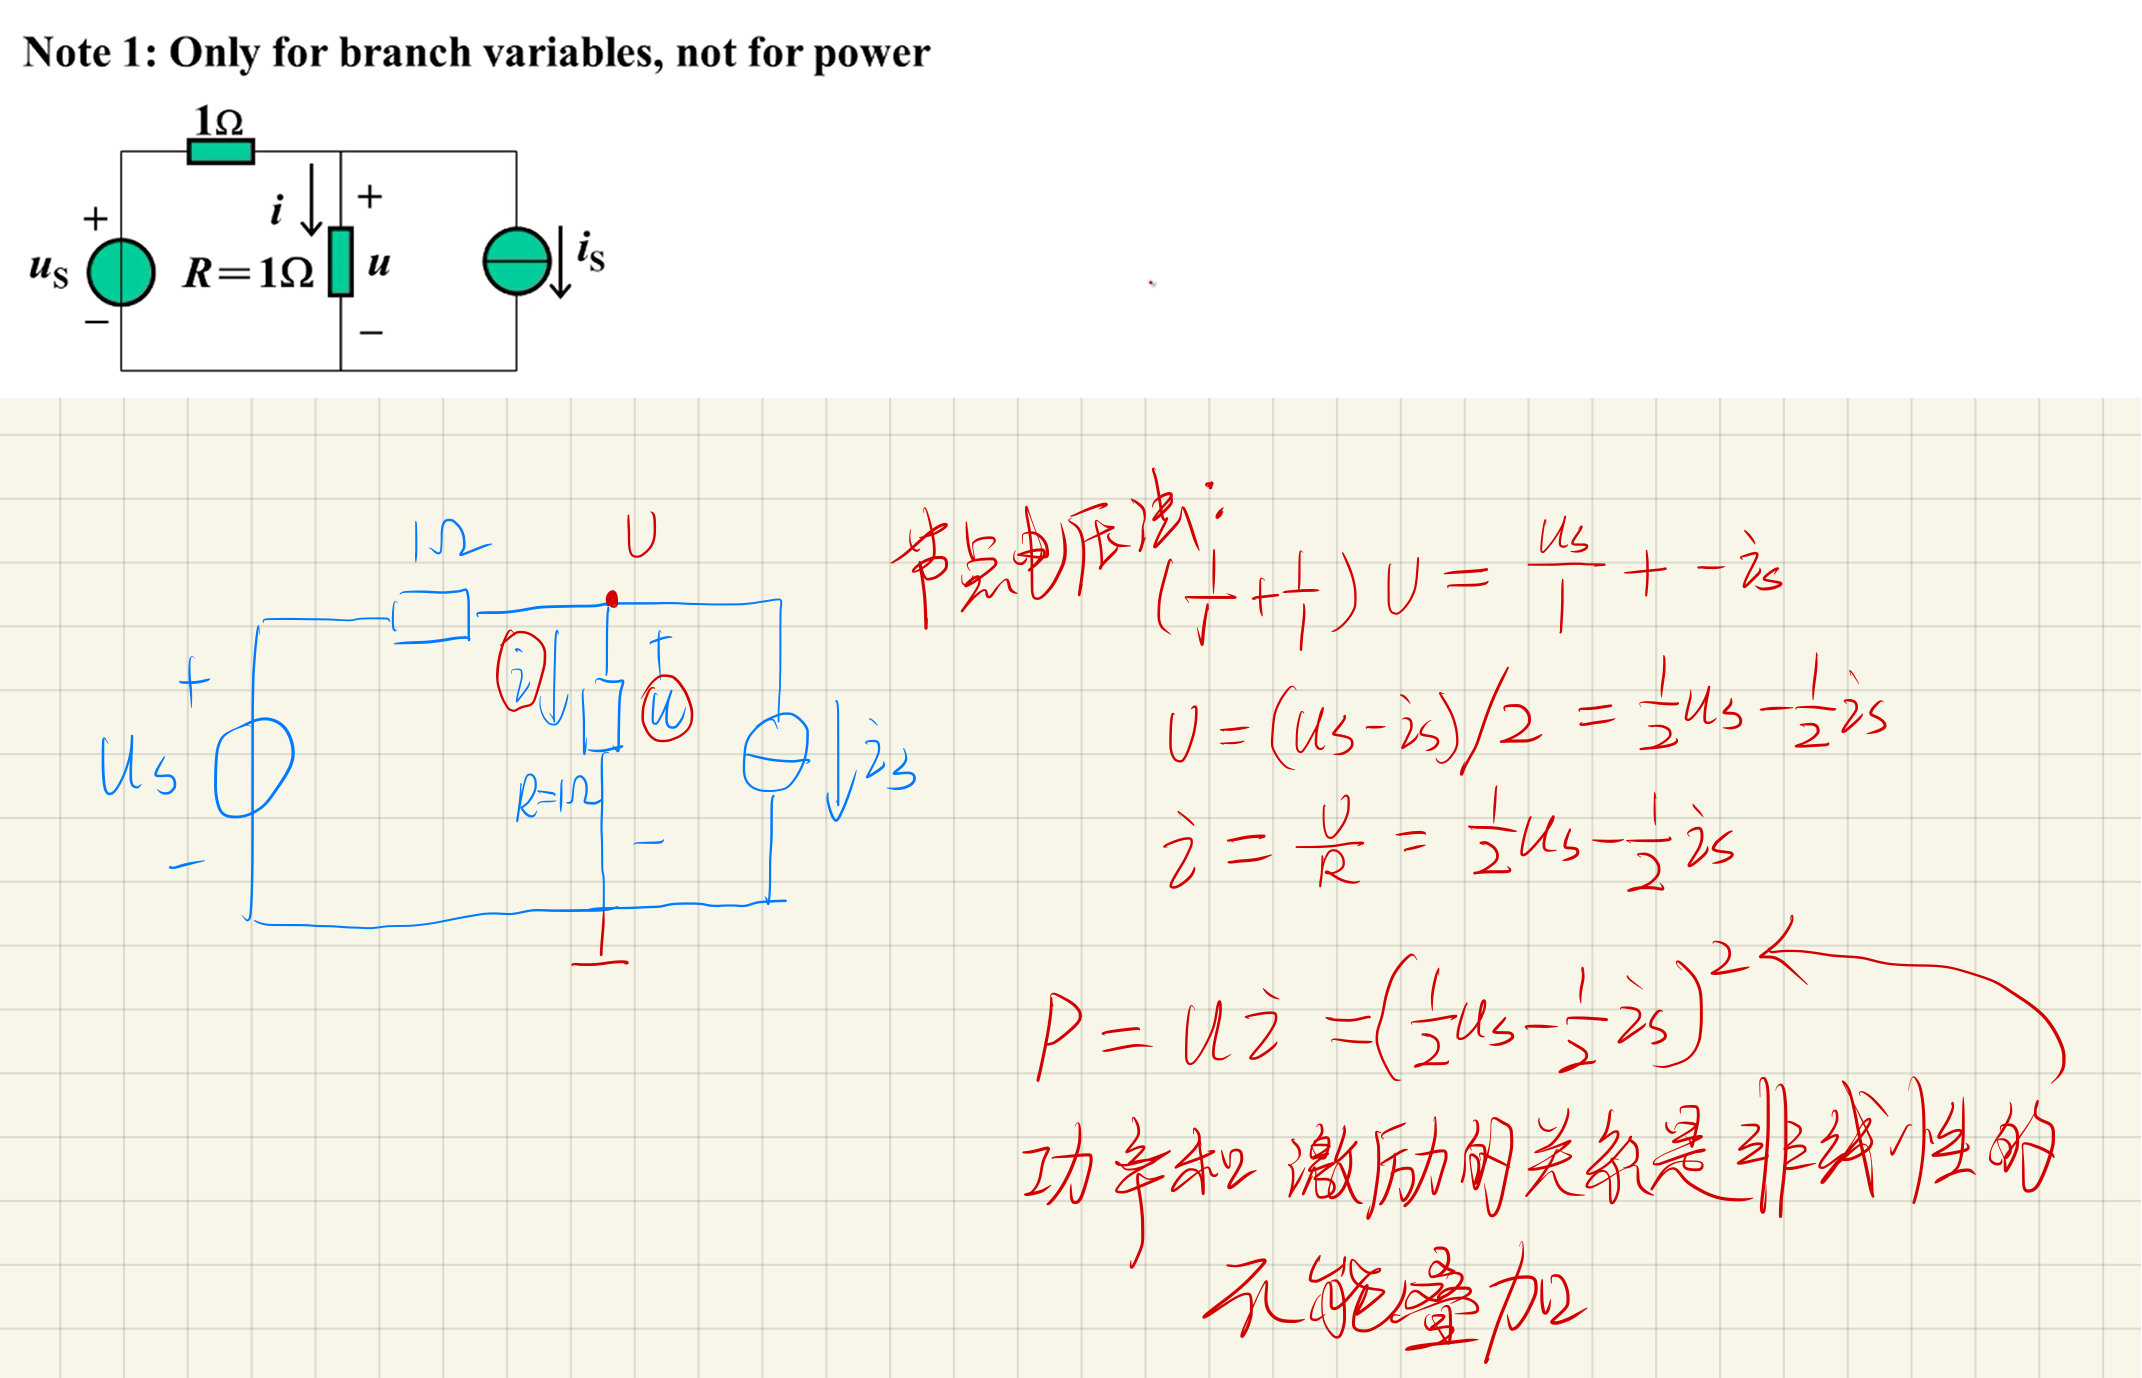 Note 1: Only for branch variables, not for power
1Ω
i
+
+
uS
R=1Ω
u
iS
−
−
1Ω
U
节点电压法:
(1/1+1/1)U = us/1 + -is
+
i
+
u
us
R=1Ω
is
-
-
U = (us-is)/2 = 1/2us-1/2is
i = U/R = 1/2us-1/2is
P = ui = (1/2us-1/2is)²
功率和激励的关系是非线性的
不能叠加